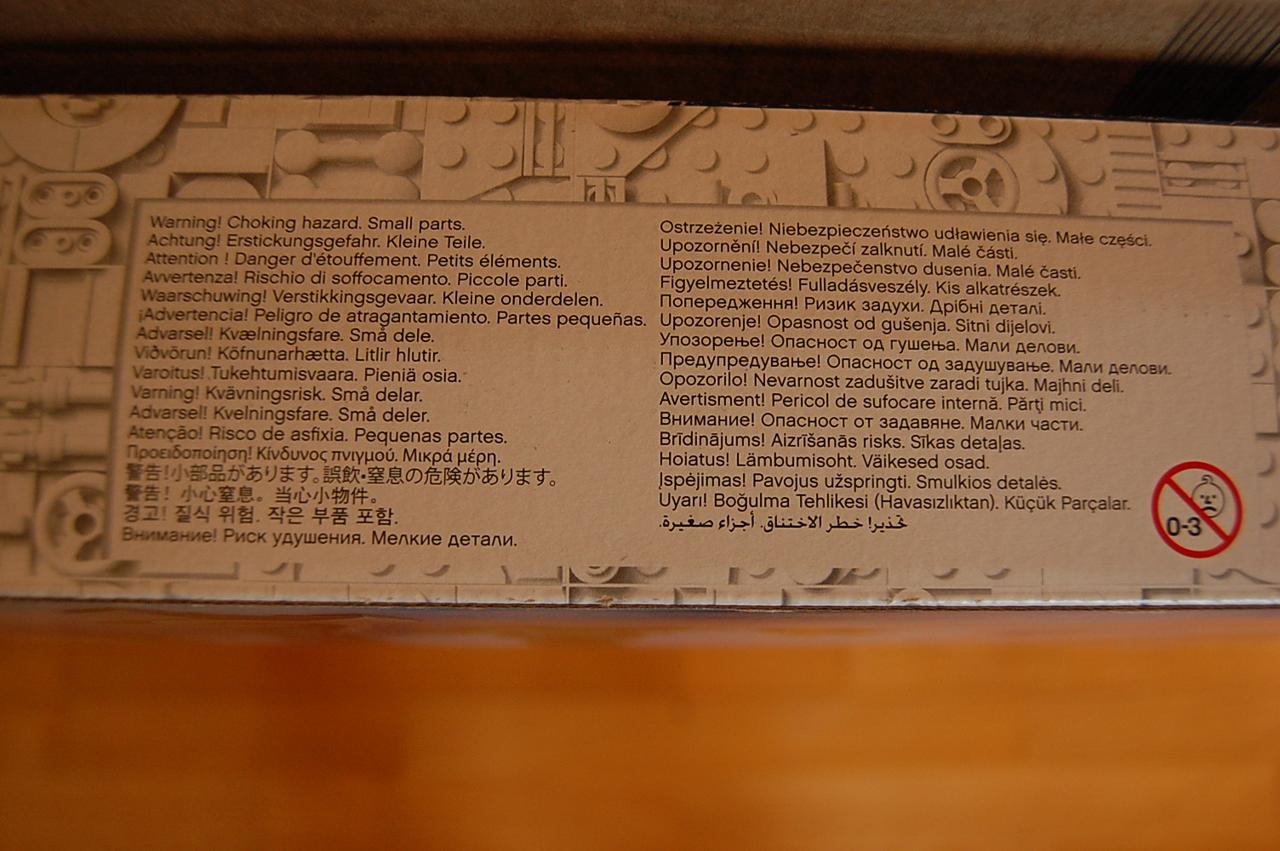 Warning! Choking hazard. Small parts.
Achtung! Erstickungsgefahr. Kleine Teile.
Attention ! Danger d'étouffement. Petits éléments.
Avvertenza! Rischio di soffocamento. Piccole parti.
Waarschuwing! Verstikkingsgevaar. Kleine onderdelen.
¡Advertencia! Peligro de atragantamiento. Partes pequeñas.
Advarsel! Kvælningsfare. Små dele.
Viðvörun! Köfnunarhætta. Litlir hlutir.
Varoitus! Tukehtumisvaara. Pieniä osia.
Varning! Kvävningsrisk. Små delar.
Advarsel! Kvelningsfare. Små deler.
Atenção! Risco de asfixia. Pequenas partes.
Προειδοποίηση! Κίνδυνος πνιγμού. Μικρά μέρη.
警告!小部品があります。誤飲・窒息の危険があります。
警告! 小心窒息。当心小物件。
경고! 질식 위험. 작은 부품 포함.
Внимание! Риск удушения. Мелкие детали.
Ostrzeżenie! Niebezpieczeństwo udławienia się. Małe części.
Upozornění! Nebezpečí zalknutí. Malé části.
Upozornenie! Nebezpečenstvo dusenia. Malé časti.
Figyelmeztetés! Fulladásveszély. Kis alkatrészek.
Попередження! Ризик задухи. Дрібні деталі.
Upozorenje! Opasnost od gušenja. Sitni dijelovi.
Упозорење! Опасност од гушења. Мали делови.
Предупредување! Опасност од задушување. Мали делови.
Opozorilo! Nevarnost zadušitve zaradi tujka. Majhni deli.
Avertisment! Pericol de sufocare internă. Părţi mici.
Внимание! Опасност от задавяне. Малки части.
Brīdinājums! Aizrīšanās risks. Sīkas detaļas.
Hoiatus! Lämbumisoht. Väikesed osad.
Įspėjimas! Pavojus užspringti. Smulkios detalės.
Uyarı! Boğulma Tehlikesi (Havasızlıktan). Küçük Parçalar.
تحذير! خطر الاختناق. أجزاء صغيرة.
0-3